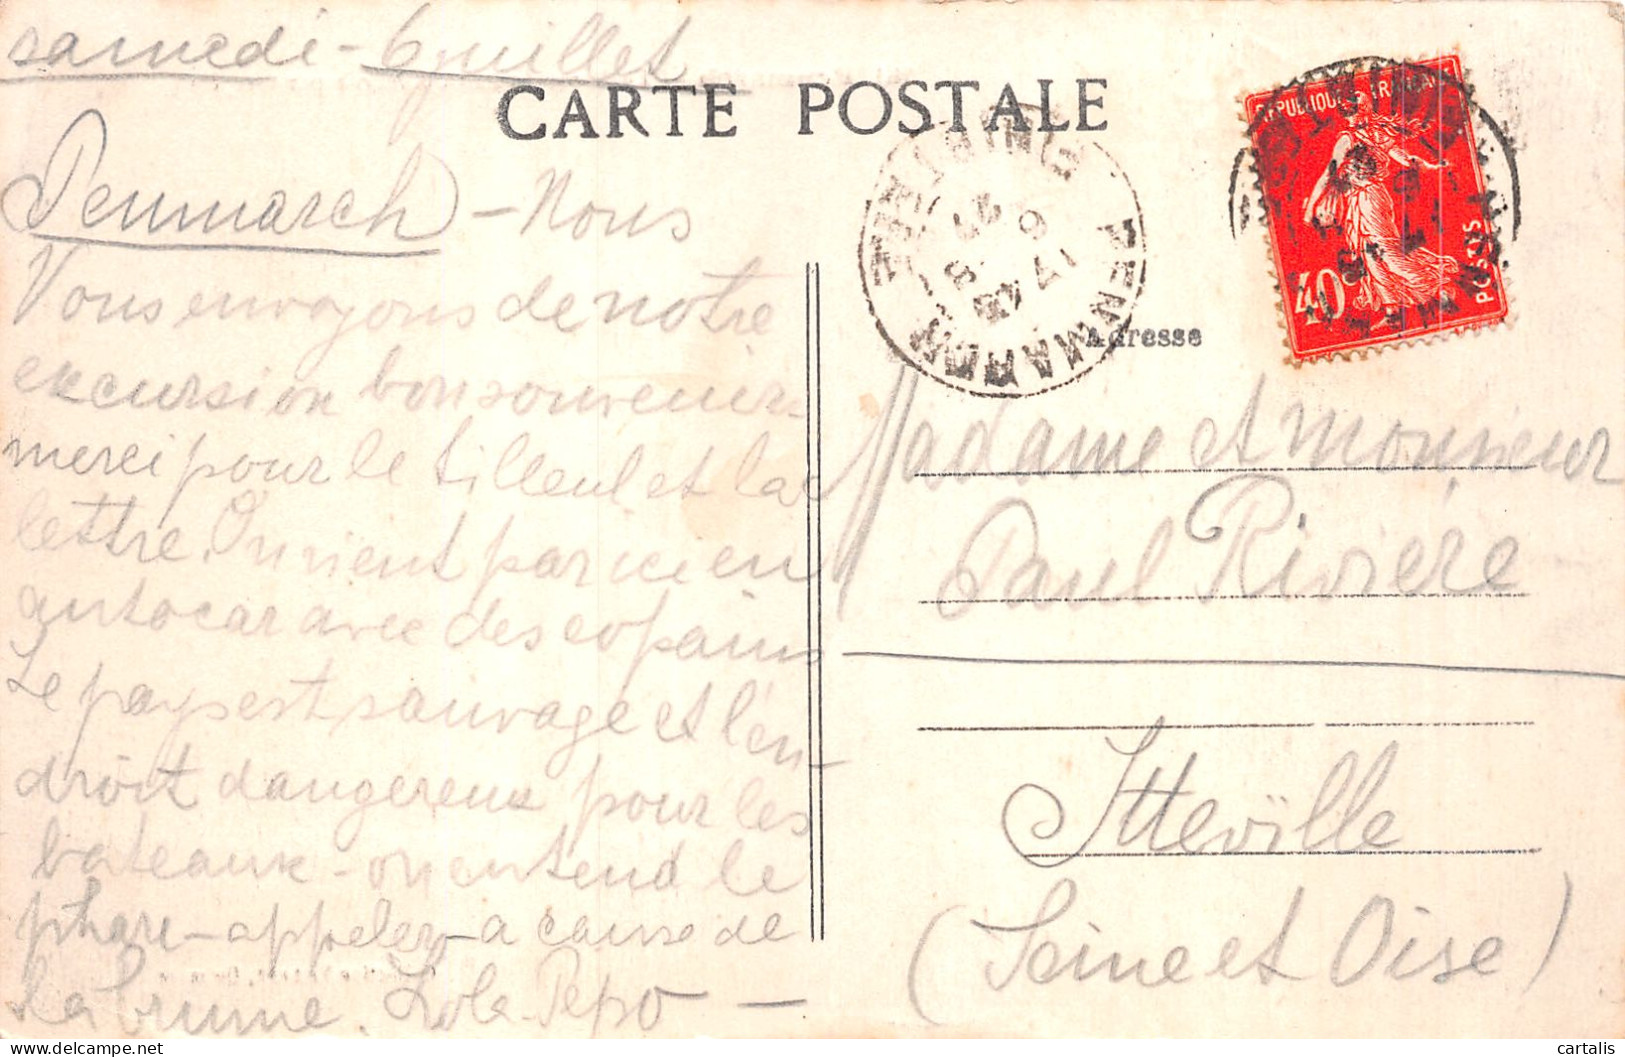 samedi - 6 juillet
CARTE POSTALE
Penmarch - Nous
Vous envoyons de notre
excursion bon souvenir -
merci pour le tilleul et la
lettre. On vient par ici en
autocar avec des copains
Le pays est sauvage et l'en-
droit dangereux pour les
bateaux - on entend le
phare - appeler - a cause de
la brume. Lola Pepo -
REPUBLIQUE FRANÇAISE
40c
POSTES
PENMARCH
Adresse
Madame et Monsieur
Paul Rivière
Itteville
(Seine et Oise)
cartalis